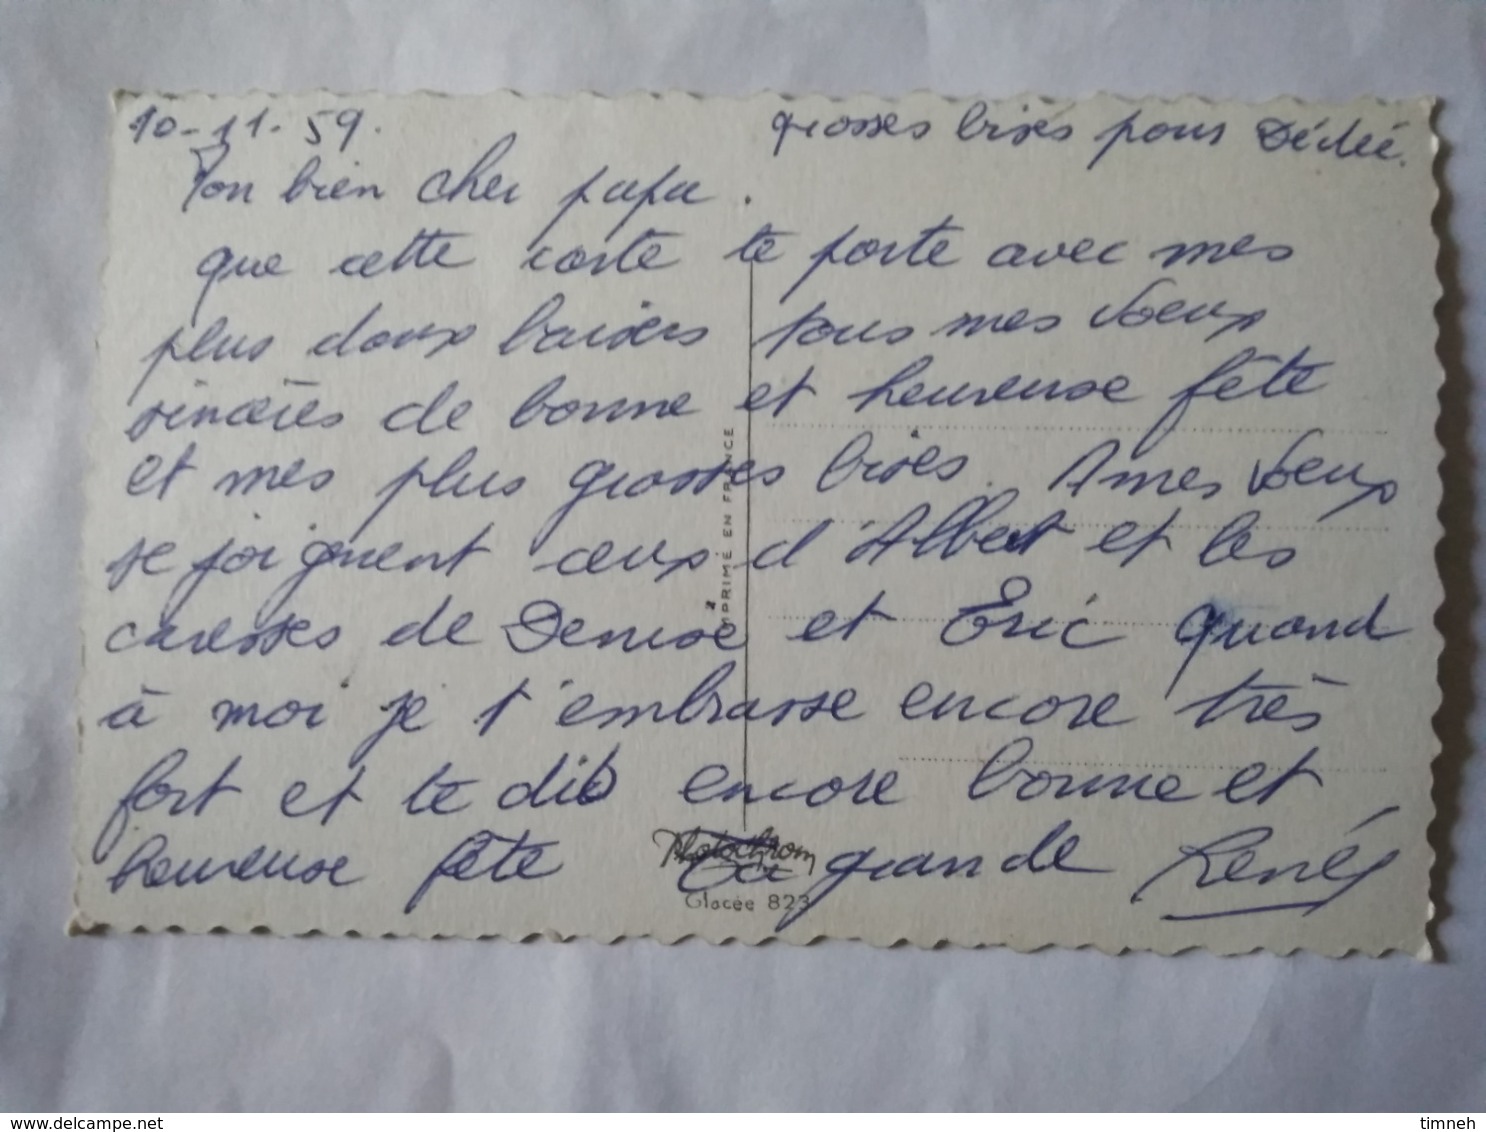 10-11-59.
grosses bises pour Dédée.
Mon bien cher papa.
que cette carte te porte avec mes
plus doux baisers tous mes voeux
sincères de bonne et heureuse fête
et mes plus grosses bises. A mes voeux
se joignent ceux d'Albert et les
caresses de Denise et Eric quand
à moi je t'embrasse encore très
fort et te dis encore bonne et
heureuse fête Ta grande Renée
IMPRIMÉ EN FRANCE
Photochrom
Glacée 823
timneh
delcampe.net